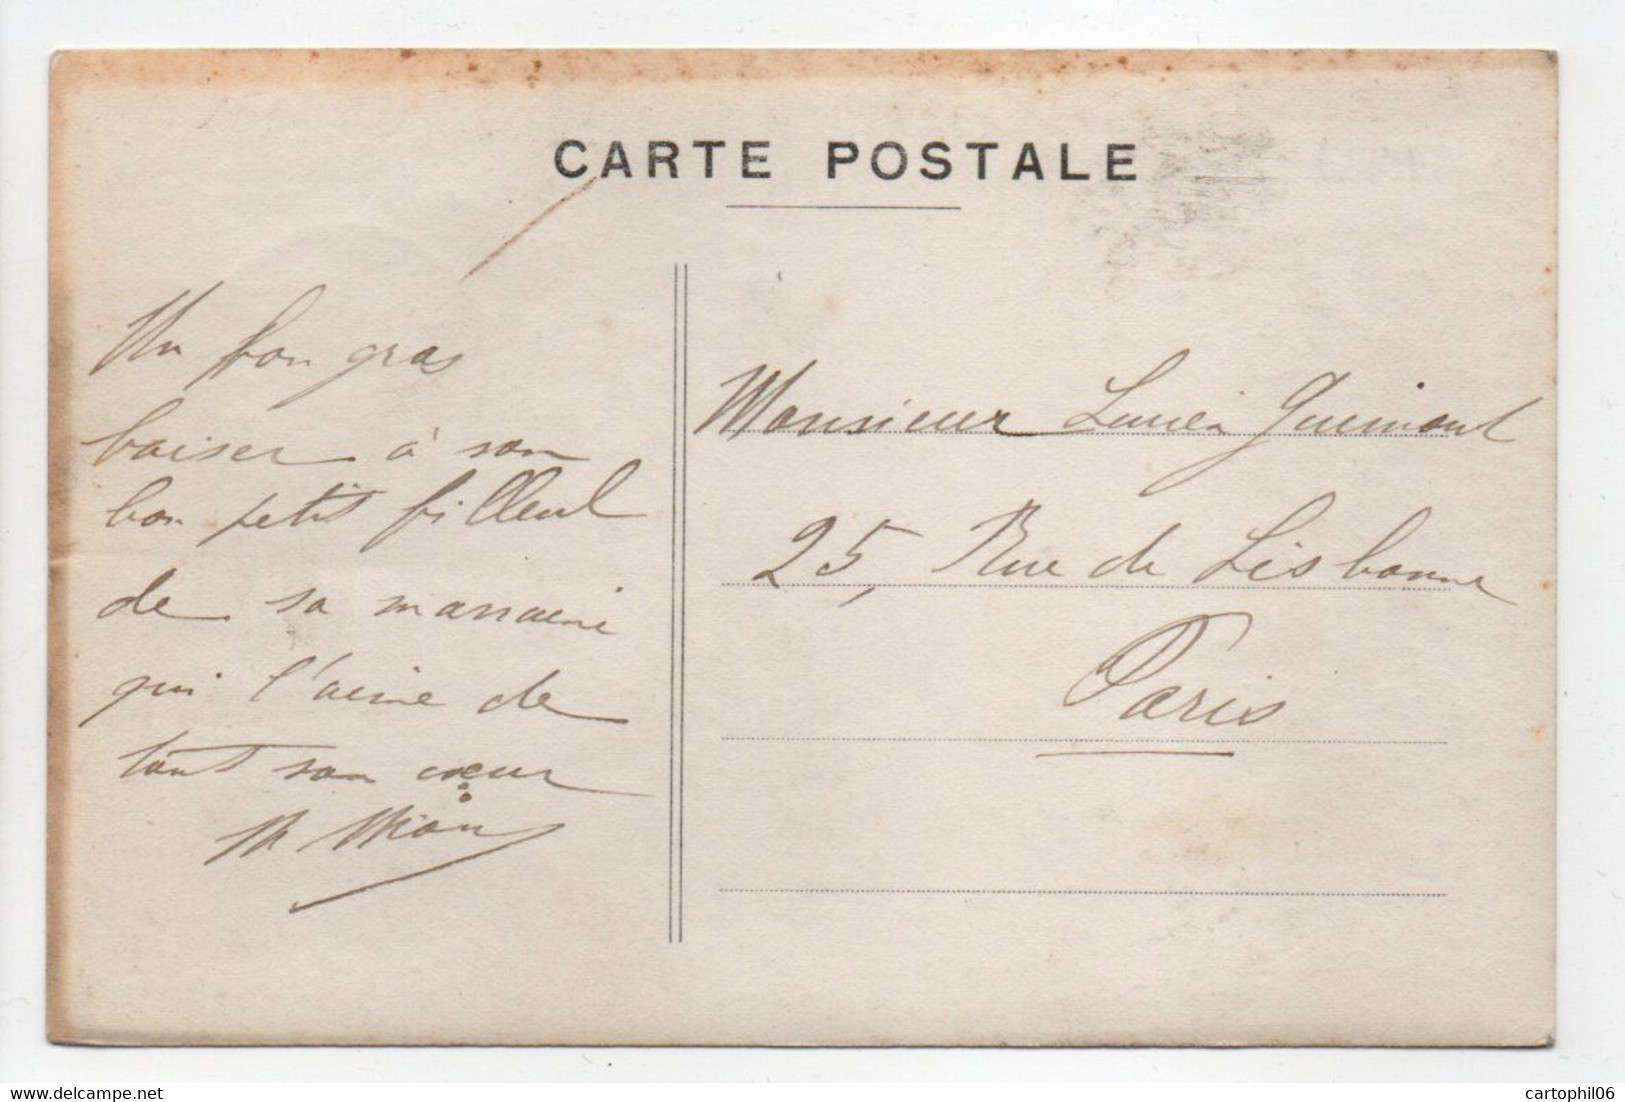 CARTE POSTALE
Un bon gros
baiser à son
bon petit filleul
de sa marraine
qui l'aime de
tout son cœur
Monsieur Lucien Guimont
25, Rue de Lisbonne
Paris
cartophil06